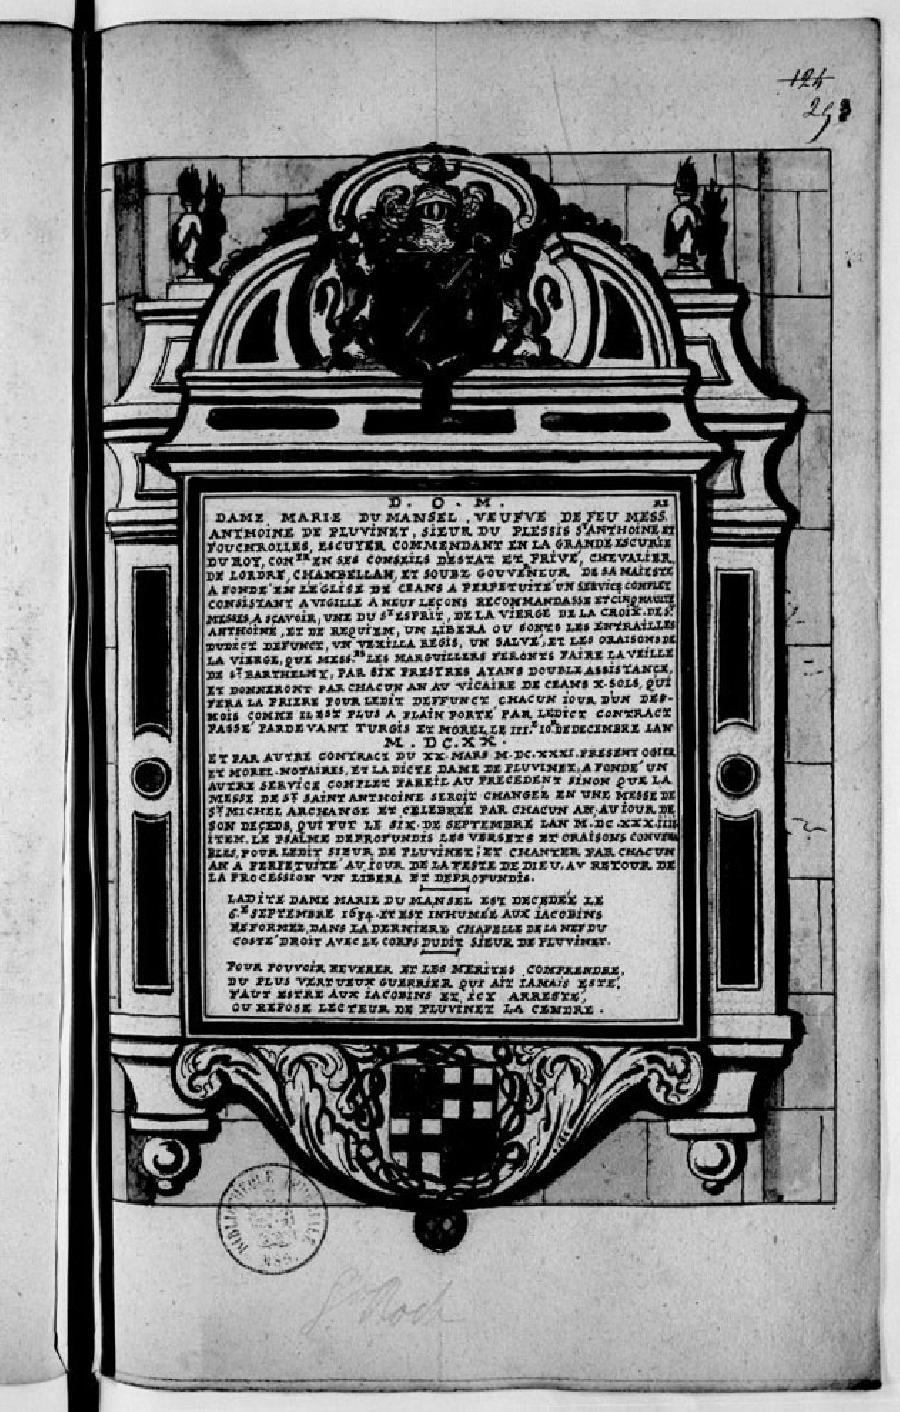 124
293
D. O. M.
DAME MARIE DU MANSEL, VEUFVE DE FEU MESS.RE
ANTHOINE DE PLUVINET, SIEUR DU PLESSIS ST ANTHOINE ET
FOUCHROLLES, ESCUYER COMMENDANT EN LA GRANDE ESCURIE
DU ROY, CON.ER EN SES CONSEILS D'ESTAT ET PRIVE, CHEVALIER
DE LORDRE, CHAMBELLAN, ET SOUBZ GOUVERNEUR DE SA MAIESTE
A FONDÉ EN L'EGLISE DE CEANS A PERPETUITÉ UN SERVICE COMPLET
CONSISTANT A VIGILLE A NEUF LEÇONS RECOMMANDASSE ET CINQ HAUTES
MESSES, A SCAVOIR, UNE DU ST ESPRIT, DE LA VIERGE DE LA CROIX DE ST
ANTHOINE, ET DE REQUIEM, UN LIBERA OU SONT LES ENTRAILLES
DUDICT DEFUNCT, UN VEXILLA REGIS, UN SALVE, ET LES ORAISONS DE
LA VIERGE, QUE MESS.RS LES MARGUILLERS FERONT FAIRE LA VEILLE
DE ST BARTHELMY, PAR SIX PRESTRES AYANS DOUBLE ASSISTANCE,
ET DONNERONT PAR CHACUN AN AU VICAIRE DE CEANS X. SOLS, QUI
FERA LA PRIERE POUR LEDIT DEFFUNCT CHACUN IOUR D'UN DES
MOIS COMME IL EST PLUS A PLAIN PORTÉ PAR LEDICT CONTRACT
PASSÉ PARDEVANT TURGIS ET MORELLE IIII.E IO.R DE DECEMBRE LAN
M. DC. XX.
ET PAR AUTRE CONTRACT DU XX. MARS M. DC. XXXI. PRESENT OGIER
ET MOREL NOTAIRES, ET LA DICTE DAME DE PLUVINET, A FONDÉ UN
AUTRE SERVICE COMPLET PAREIL AU PRECEDENT SINON QUE LA
MESSE DE ST SAINT ANTHOINE SEROIT CHANGEE EN UNE MESSE DE
ST MICHEL ARCHANGE ET CELEBREE PAR CHACUN AN AU IOUR DE
SON DECEDS, QUI FUT LE SIX DE SEPTEMBRE LAN M. DC. XXX. IIII
ITEM. LE PSALME DEPROFUNDIS LES VERSETS ET ORAISONS CONVENA
BLES, POUR LEDIT SIEUR DE PLUVINET; ET CHANTER PAR CHACUN
AN A PERPETUITÉ AU IOUR DE LA FESTE DE DIEU, AV RETOUR DE
LA PROCESSION VN LIBERA ET DEPROFUNDIS.
LADITE DAME MARIE DU MANSEL EST DECEDÉE LE
6.E SEPTEMBRE 1634 ET EST INHUMÉE AUX IACOBINS
REFORMEZ, DANS LA DERNIERE CHAPELLE DE LA NEF DU
COSTÉ DROIT AVEC LE CORPS DUDIT SIEUR DE PLUVINET.
POUR POUVOIR REVERER ET LES MERITES COMPRENDRE,
DU PLUS VERTUEUX GUERRIER QUI AIT IAMAIS ESTÉ,
FAUT ESTRE AUX IACOBINS ET ICY ARRESTÉ,
OU REPOSE LECTEUR DE PLUVINET LA CENDRE.
St Roch